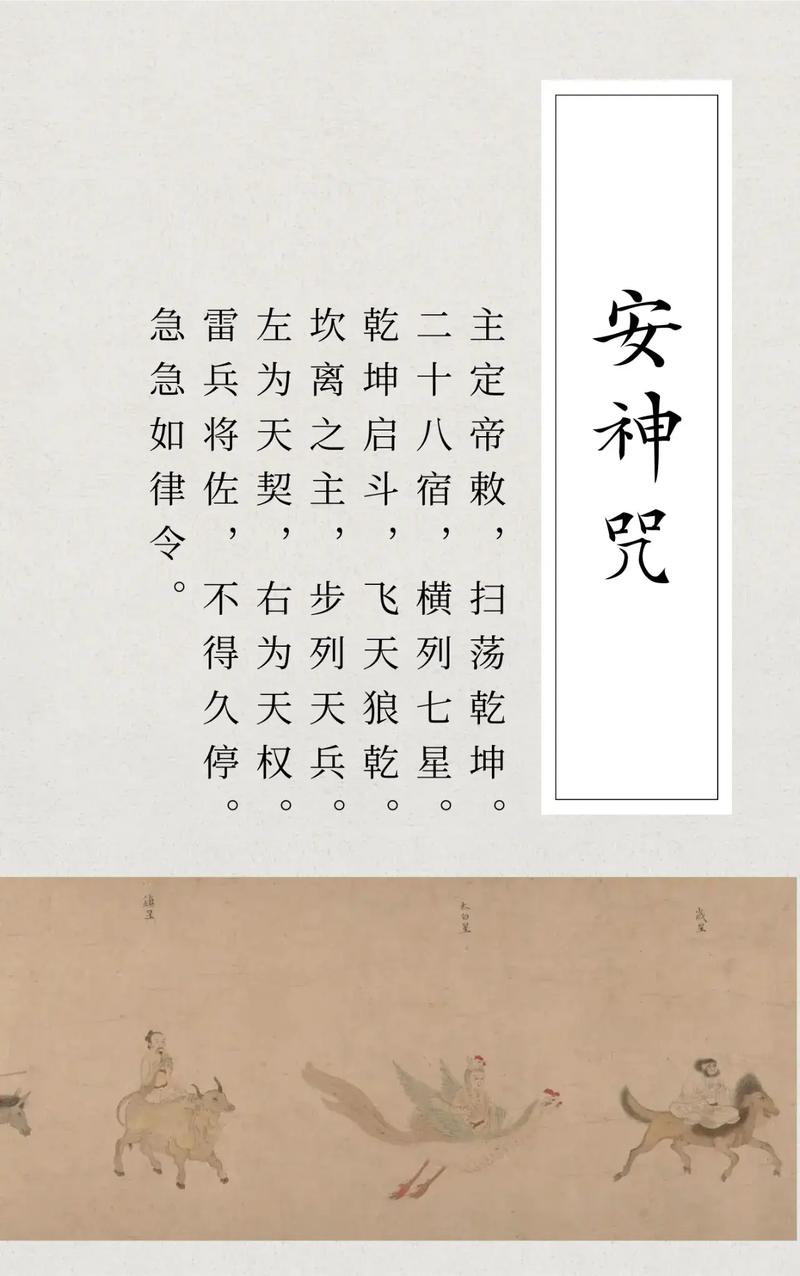 安神咒
主定帝敕，扫荡乾坤。
二十八宿，横列七星。
乾坤启斗，飞天狼乾。
坎离之主，步列天兵。
左为天契，右为天权。
雷兵将佐，不得久停。
急急如律令。
歲星
太白星
鎮星